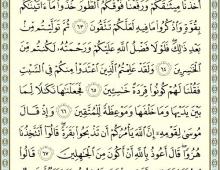 أَخَذْنَا مِيثَٰقَكُمْ وَرَفَعْنَا فَوْقَكُمُ ٱلطُّورَ خُذُوا۟ مَآ ءَاتَيْنَٰكُم
بِقُوَّةٍ وَٱذْكُرُوا۟ مَا فِيهِ لَعَلَّكُمْ تَتَّقُونَ ٦٣ ثُمَّ تَوَلَّيْتُم مِّنۢ
بَعْدِ ذَٰلِكَ ۖ فَلَوْلَا فَضْلُ ٱللَّهِ عَلَيْكُمْ وَرَحْمَتُهُۥ لَكُنتُم مِّنَ
ٱلْخَٰسِرِينَ ٦٤ وَلَقَدْ عَلِمْتُمُ ٱلَّذِينَ ٱعْتَدَوْا۟ مِنكُمْ فِى ٱلسَّبْتِ
فَقُلْنَا لَهُمْ كُونُوا۟ قِرَدَةً خَٰسِـِٔينَ ٦٥ فَجَعَلْنَٰهَا نَكَٰلًا لِّمَا
بَيْنَ يَدَيْهَا وَمَا خَلْفَهَا وَمَوْعِظَةً لِّلْمُتَّقِينَ ٦٦ وَإِذْ قَالَ
مُوسَىٰ لِقَوْمِهِۦٓ إِنَّ ٱللَّهَ يَأْمُرُكُمْ أَن تَذْبَحُوا۟ بَقَرَةً ۖ قَالُوٓا۟ أَتَتَّخِذُنَا
هُزُوًا ۖ قَالَ أَعُوذُ بِٱللَّهِ أَنْ أَكُونَ مِنَ ٱلْجَٰهِلِينَ ٦٧